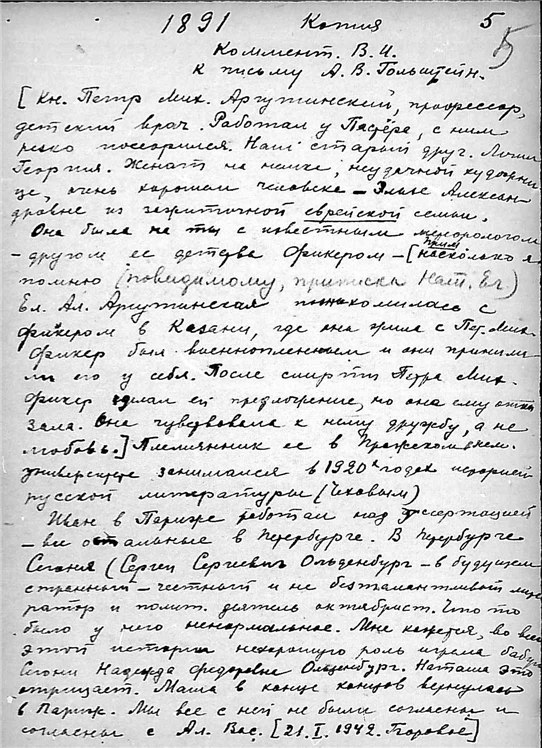 1891 Копия 5
5
Коммент. В.И.
к письму А.В. Гольштейн.
[Кн. Петр Мих. Аргутинский, профессор,
детский врач. Работал у Пастера, с ним
резко поссорился. Наш старый друг. Лечил
Георгия. Женат на немке, неудачной художни
це, очень хорошем человеке – Елене Алексан
дровне из зажиточной еврейской семьи.
Она была на ты с известным метеорологом
– другом ее детства Фикером – [прим насколько я
помню (повидимому, приписка Нат. Ег.)
Ел. Ал. Аргутинская познакомилась с
Фикером в Казани, где она жила с Пет. Мих.
Фикер был военнопленным и они принима
ли его у себя. После смерти Петра Мих.
Фикер сделал ей предложение, но она ему отка
зала. Она чувствовала к нему дружбу, а не
любовь.] Племянник ее в Пражском нем.
университете занимался в 1920х годах историей
русской литературы (Чеховым)
Иван в Париже работал над диссертацией
– все остальные в Петербурге. В Петербурге
Сегоня (Сергей Сергеевич Ольденбург – в будущем
странный – честный и не безталантливый лите
ратор и полит. деятель октябрист. Что то
было у него ненормальное. Мне кажется, во всей
этой истории нехорошую роль играла бабушка
Сегони Надежда Федоровна Ольденбург. Наташа это
отрицает. Маша в конце концов вернулась
в Париж. Мы все с ней не были согласны и
согласны с Ал. Вас. [21.I.1942. Боровое]